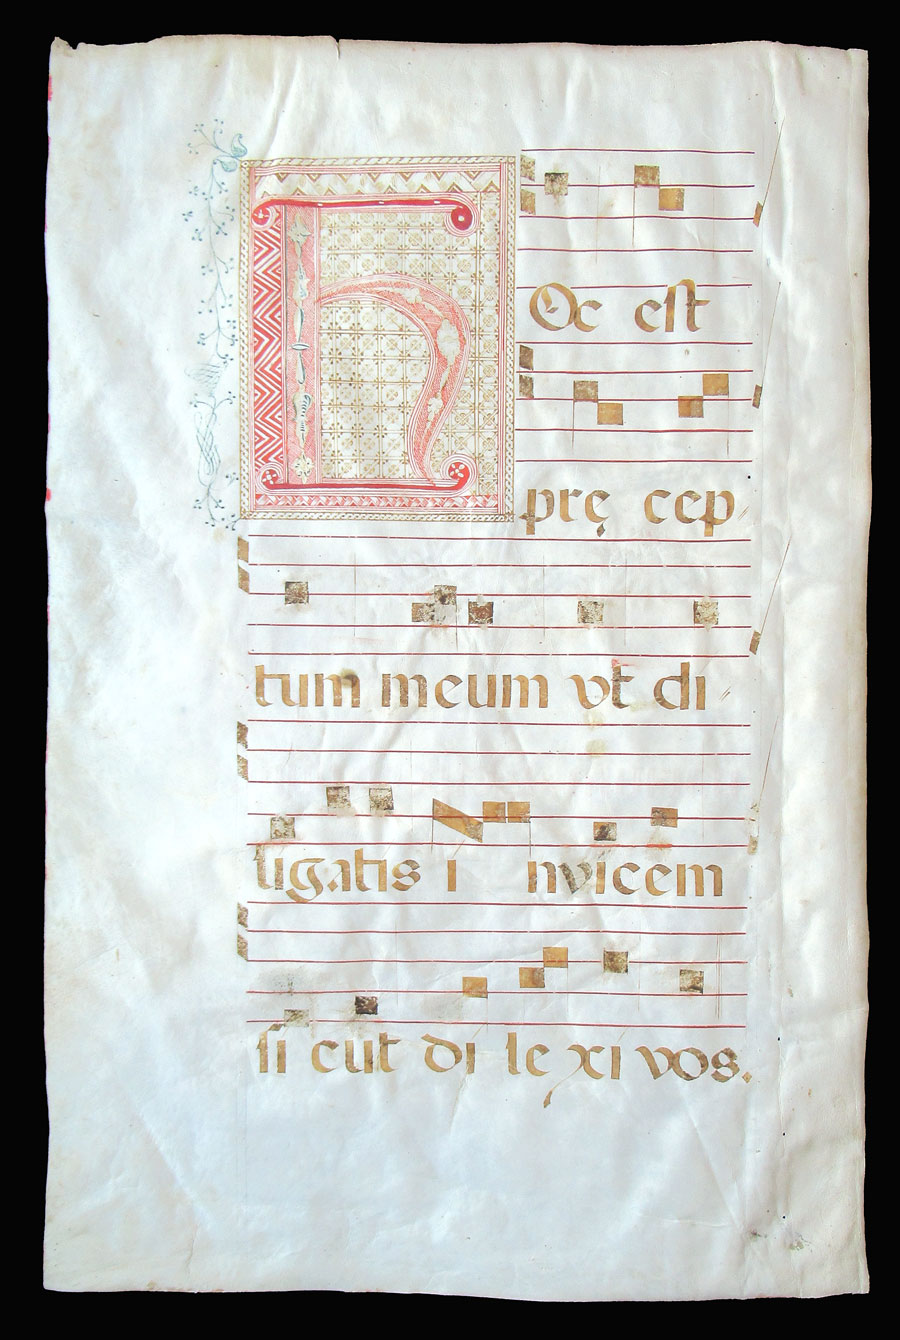 hOc est
prę cep
tum meum vt di
ligatis i nvicem
si cut di le xi vos.